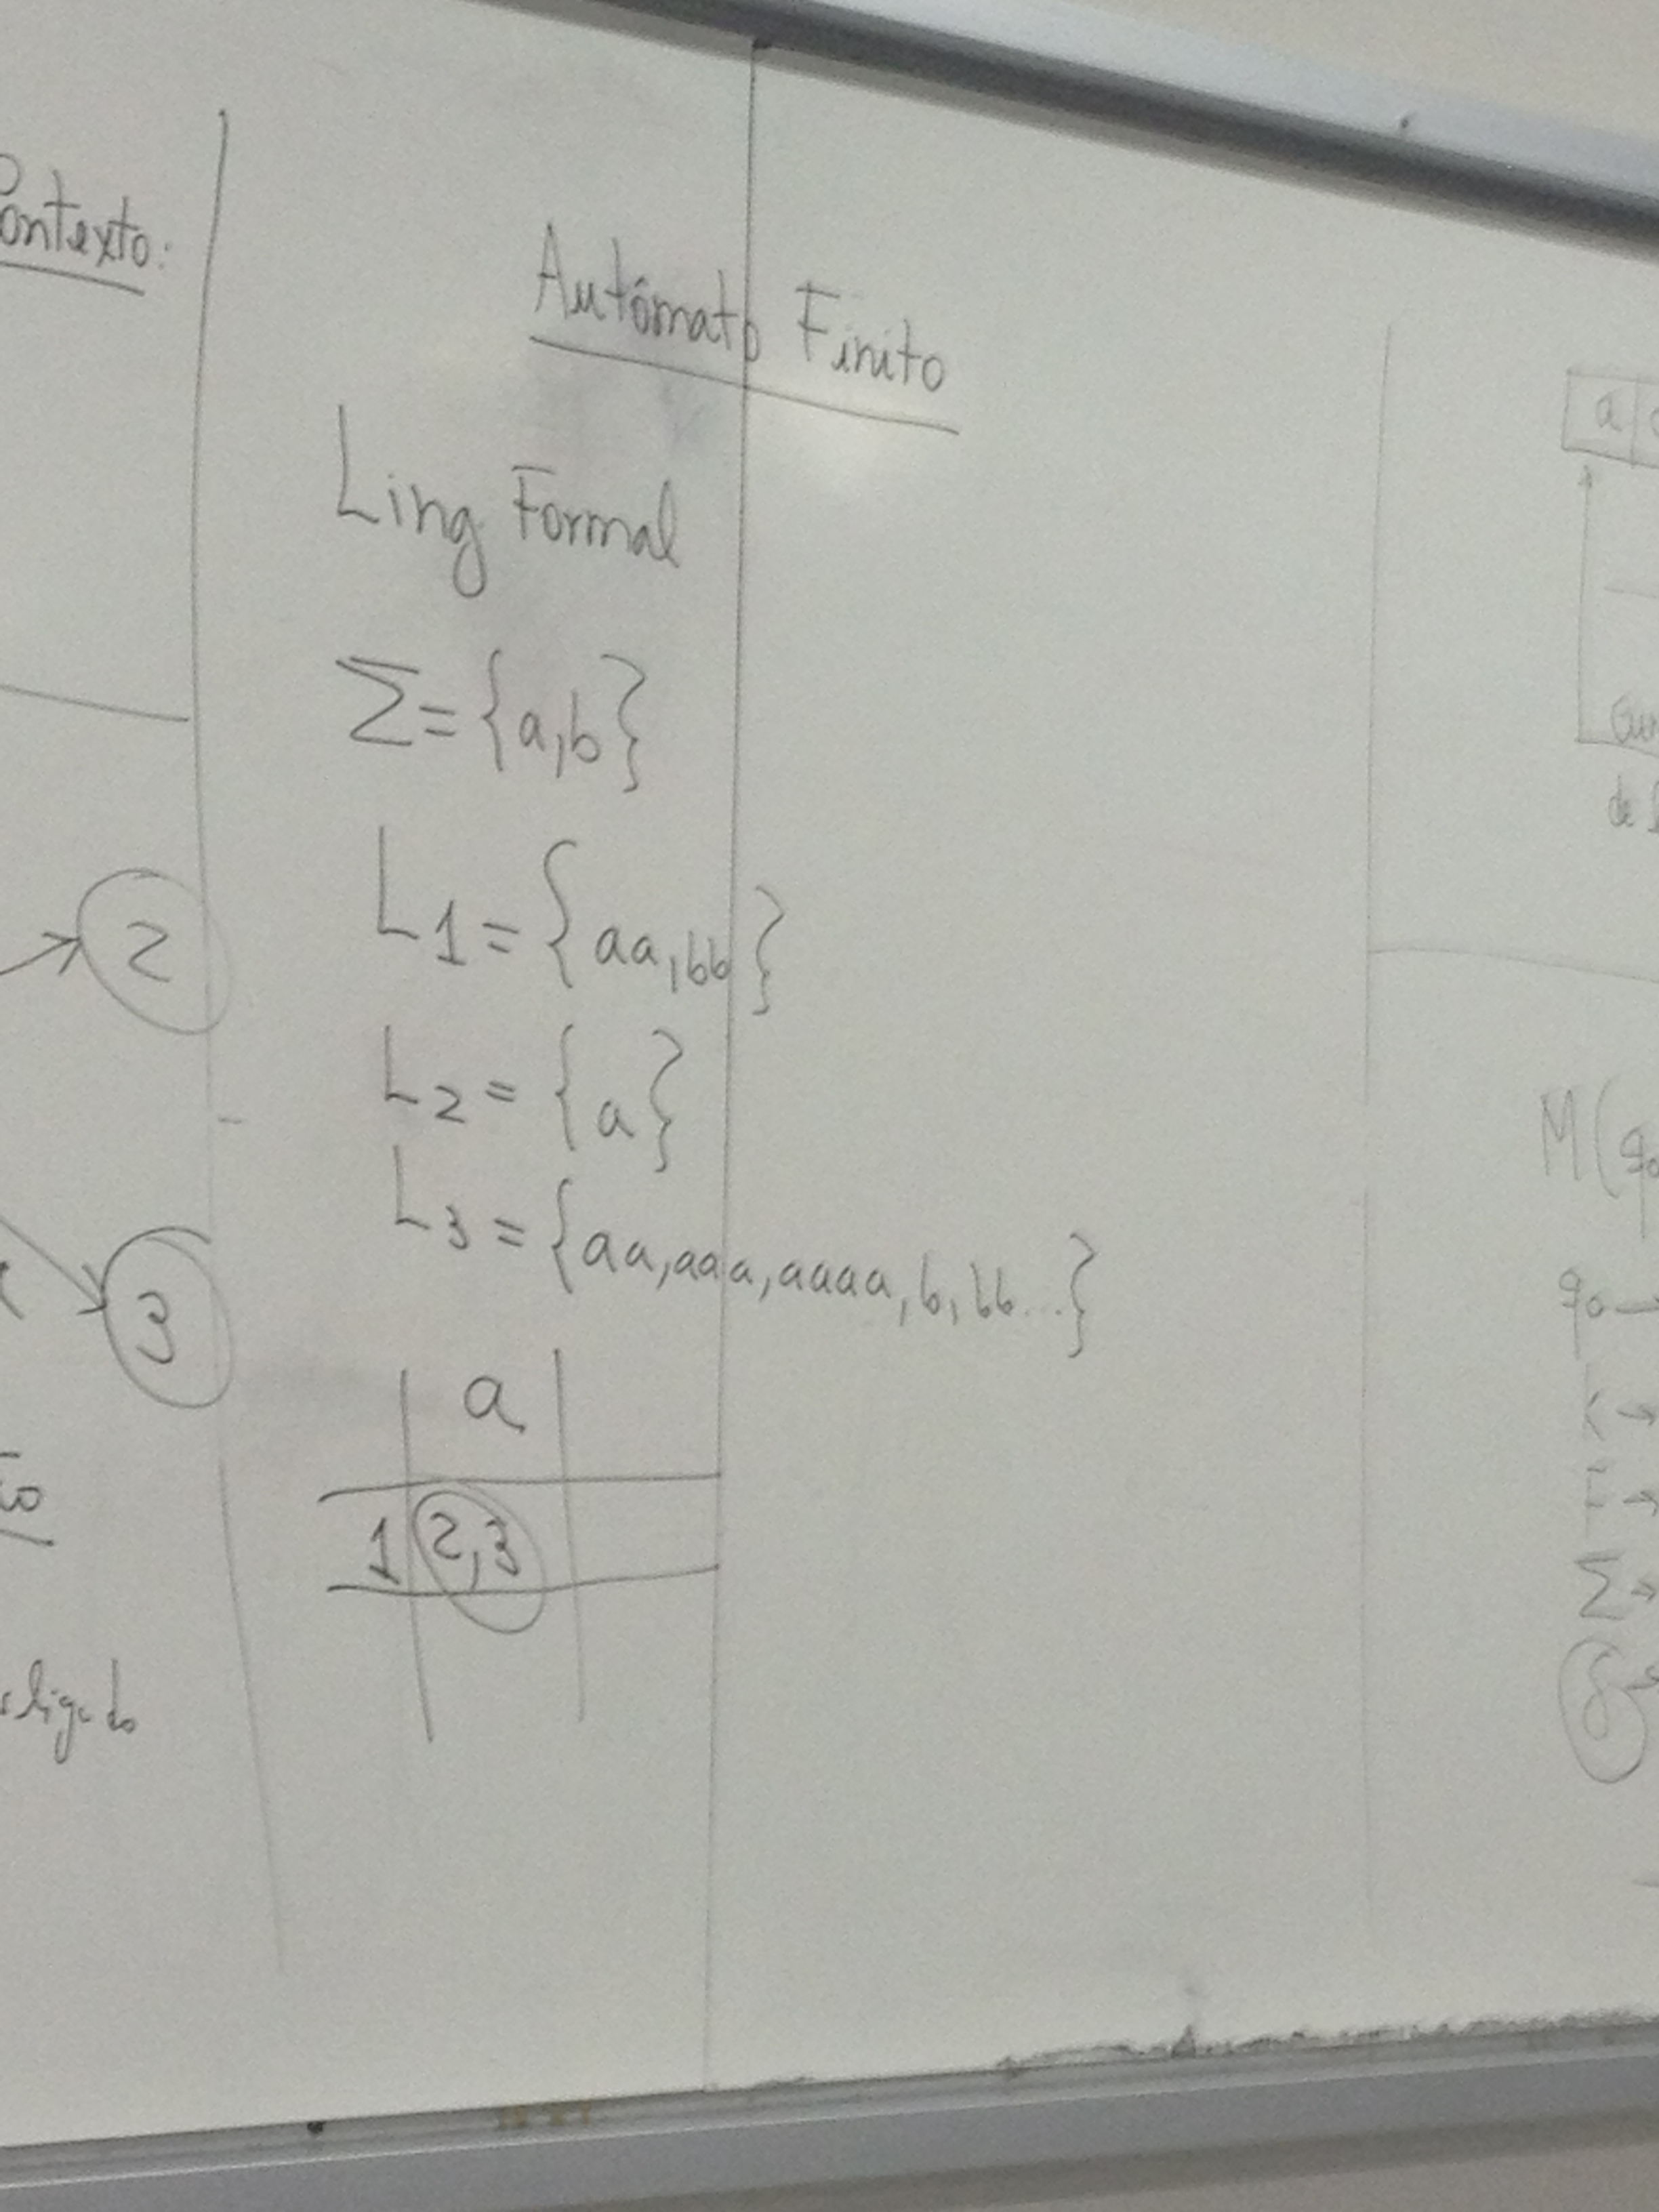 Contexto:
2
3
Autômato Finito
Ling Formal
Σ={a,b}
L1={aa,bb}
L2={a}
L3={aa,aaa,aaaa,b,bb...}
a
1 2,3
a
de
M(q0
q0→
K→
F→
Σ→
δ